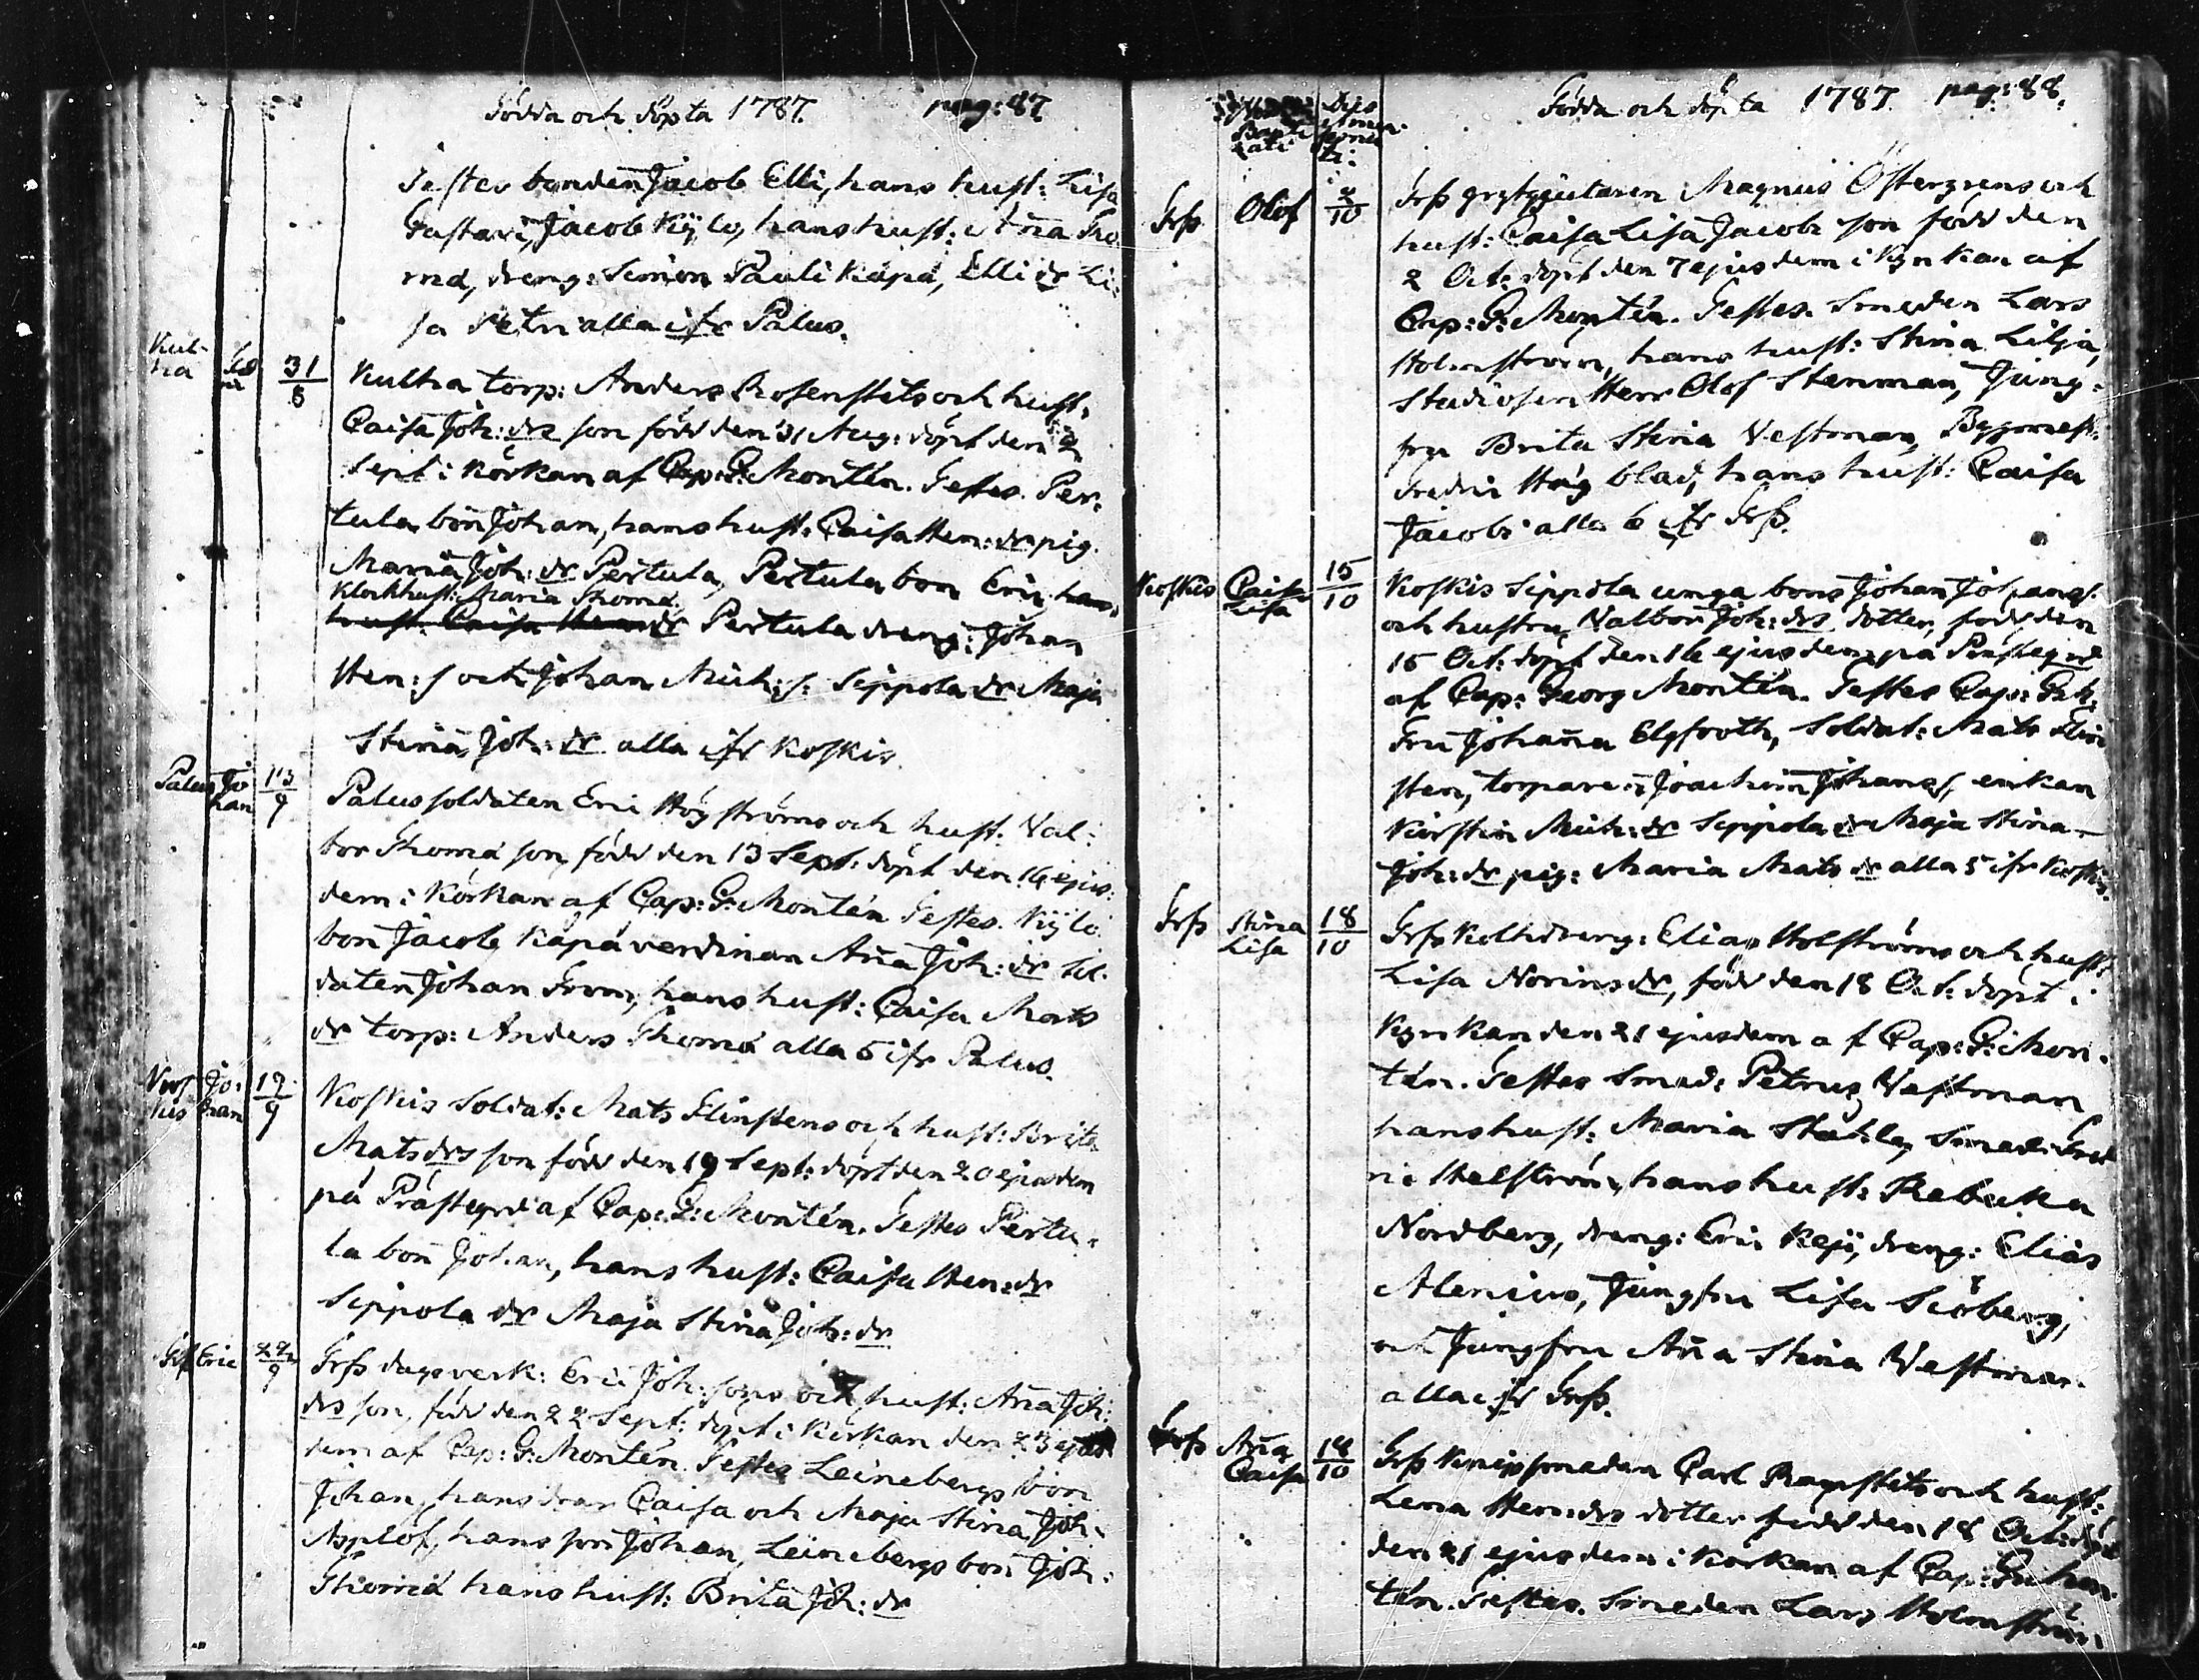 Födda och döpta 1787. pag: 87
Testes bonden Jacob Elli, hans hust: Lisa
Gustavi, Jacob Kÿlo, hans hust: Aña Tho
mæ, dreng: Simon Pauli Kápá, Elli dr Li-
sa Petri alla ifr Palus.
Kulha torp: Anders Rosenstets och hust:
Caisa Joh: drs son född den 31 Aug: döpt den 2
Sept: i Körkan af Cap: G: Montén. Testes. Per-
tula bon Johan, hans hust: Caisa Hen: dr pig.
Maria Joh: dr Pertula, Pertula bon Eric hans
Klockhust: Maria Thomæ
hust: Caisa Hen: dr Pertula dreng: Johan
Hen: s och Johan Mich: s. Seppola dr Maja
Stina Joh: dr alla ifr Koskis.
Palus Jo
han 13/9
Palus soldaten Eric Högströms och hust: Val-
bor Thomæ son, född den 13 Sept: döpt den 16 ejus-
dem i Körkan af Cap: G: Montén Testes. Kÿlo
bon Jacob, Kápá verdinan Aña Joh: dr Sol-
daten Johan From, hans hust: Caisa Mats
dr torp: Anders Thomæ alla 5 ifr Palus.
Kos Jo:
kis han 19/9
Koskis Soldat: Mats Flinstens och hust: Brita
Mats drs son född den 19 Sept: döpt den 20 ejusdem
på Prästegrd af Cap: G: Montén. Testes Pertu-
la bon Johan, hans hust: Caisa Hen: dr
Seppola dr Maja Stina Joh: dr
Eric 22/9
Frss dagsverk: Eric Joh: sons och hust: Aña Joh:
drs son, född den 22 Sept: döpt i Körkan den 23 ejus
dem af Cap: G: Montén. Testes Leinebergs bon
Johan, hans drar Caisa och Maja Stina Joh:
Applöf, hans son Johan, Leinebergs bon Joh:
Thomæ hans hust: Brita Joh: dr
Födda och döpta 1787. pag: 88.
Frss Olof 2/10
Frss grytgjutaren Magnus Östergrens och
hust: Caisa Lisa Jacobs son född den
2 Oct: döpt den 7 ejusdem i Kyrkan af
Cap: G: Montén. Testes. Smeden Lars
Holmström, hans hust: Stina Lilja,
Studiosen Herr Olof Stenman, Jung-
fru Brita Stina Vestman, Byggmest:
Fredric Högblad, hans hust: Caisa
Jacobs alla 6 ifr Frss.
Koskis Caisa
Lisa 15/10
Koskis Seppola unga bons Johan Johans:
och hustru Valbor Joh: drs dotter, född den
15 Oct: döpt den 16 ejusdem på Prestegrd
af Cap: Georg Montén. Testes Cap: G: M:
Fru Johaña Elgfooth, Soldat: Mats Flin
sten, torparen Joachim Johans s, enkan
Kirstin Mich: dr Seppola dr Maja Stina
Joh: dr pig: Maria Mats dr alla 5 ifr Koskis.
Frss Stina
Lisa 18/10
Frss Kolhdreng: Elias Holströms och hust:
Lisa Norins dr, född den 18 Oct: döpt i
Kyrkan den 21 ejusdem af Cap: G: Mon-
tén. Testes Smed: Petrus Vestman
hans hust: Maria Ståhle, Smed: Fred
ric Helström, hans hust: Rebecka
Nordberg, dreng: Eric Kejs, dreng: Elias
Alenius, Jungfru Lisa Siöberg,
och Jungfru Aña Stina Westman.
alla ifr Frss.
Frss Aña
Caisa 18/10
Frss Knipsmeden Carl Ragstets och hust:
Lena Hen: drs dotter född den 18 Oct: döpt
den 21 ejusdem i Körkan af Cap: G: Mon-
tén. Testes. Smeden Lars Holmström